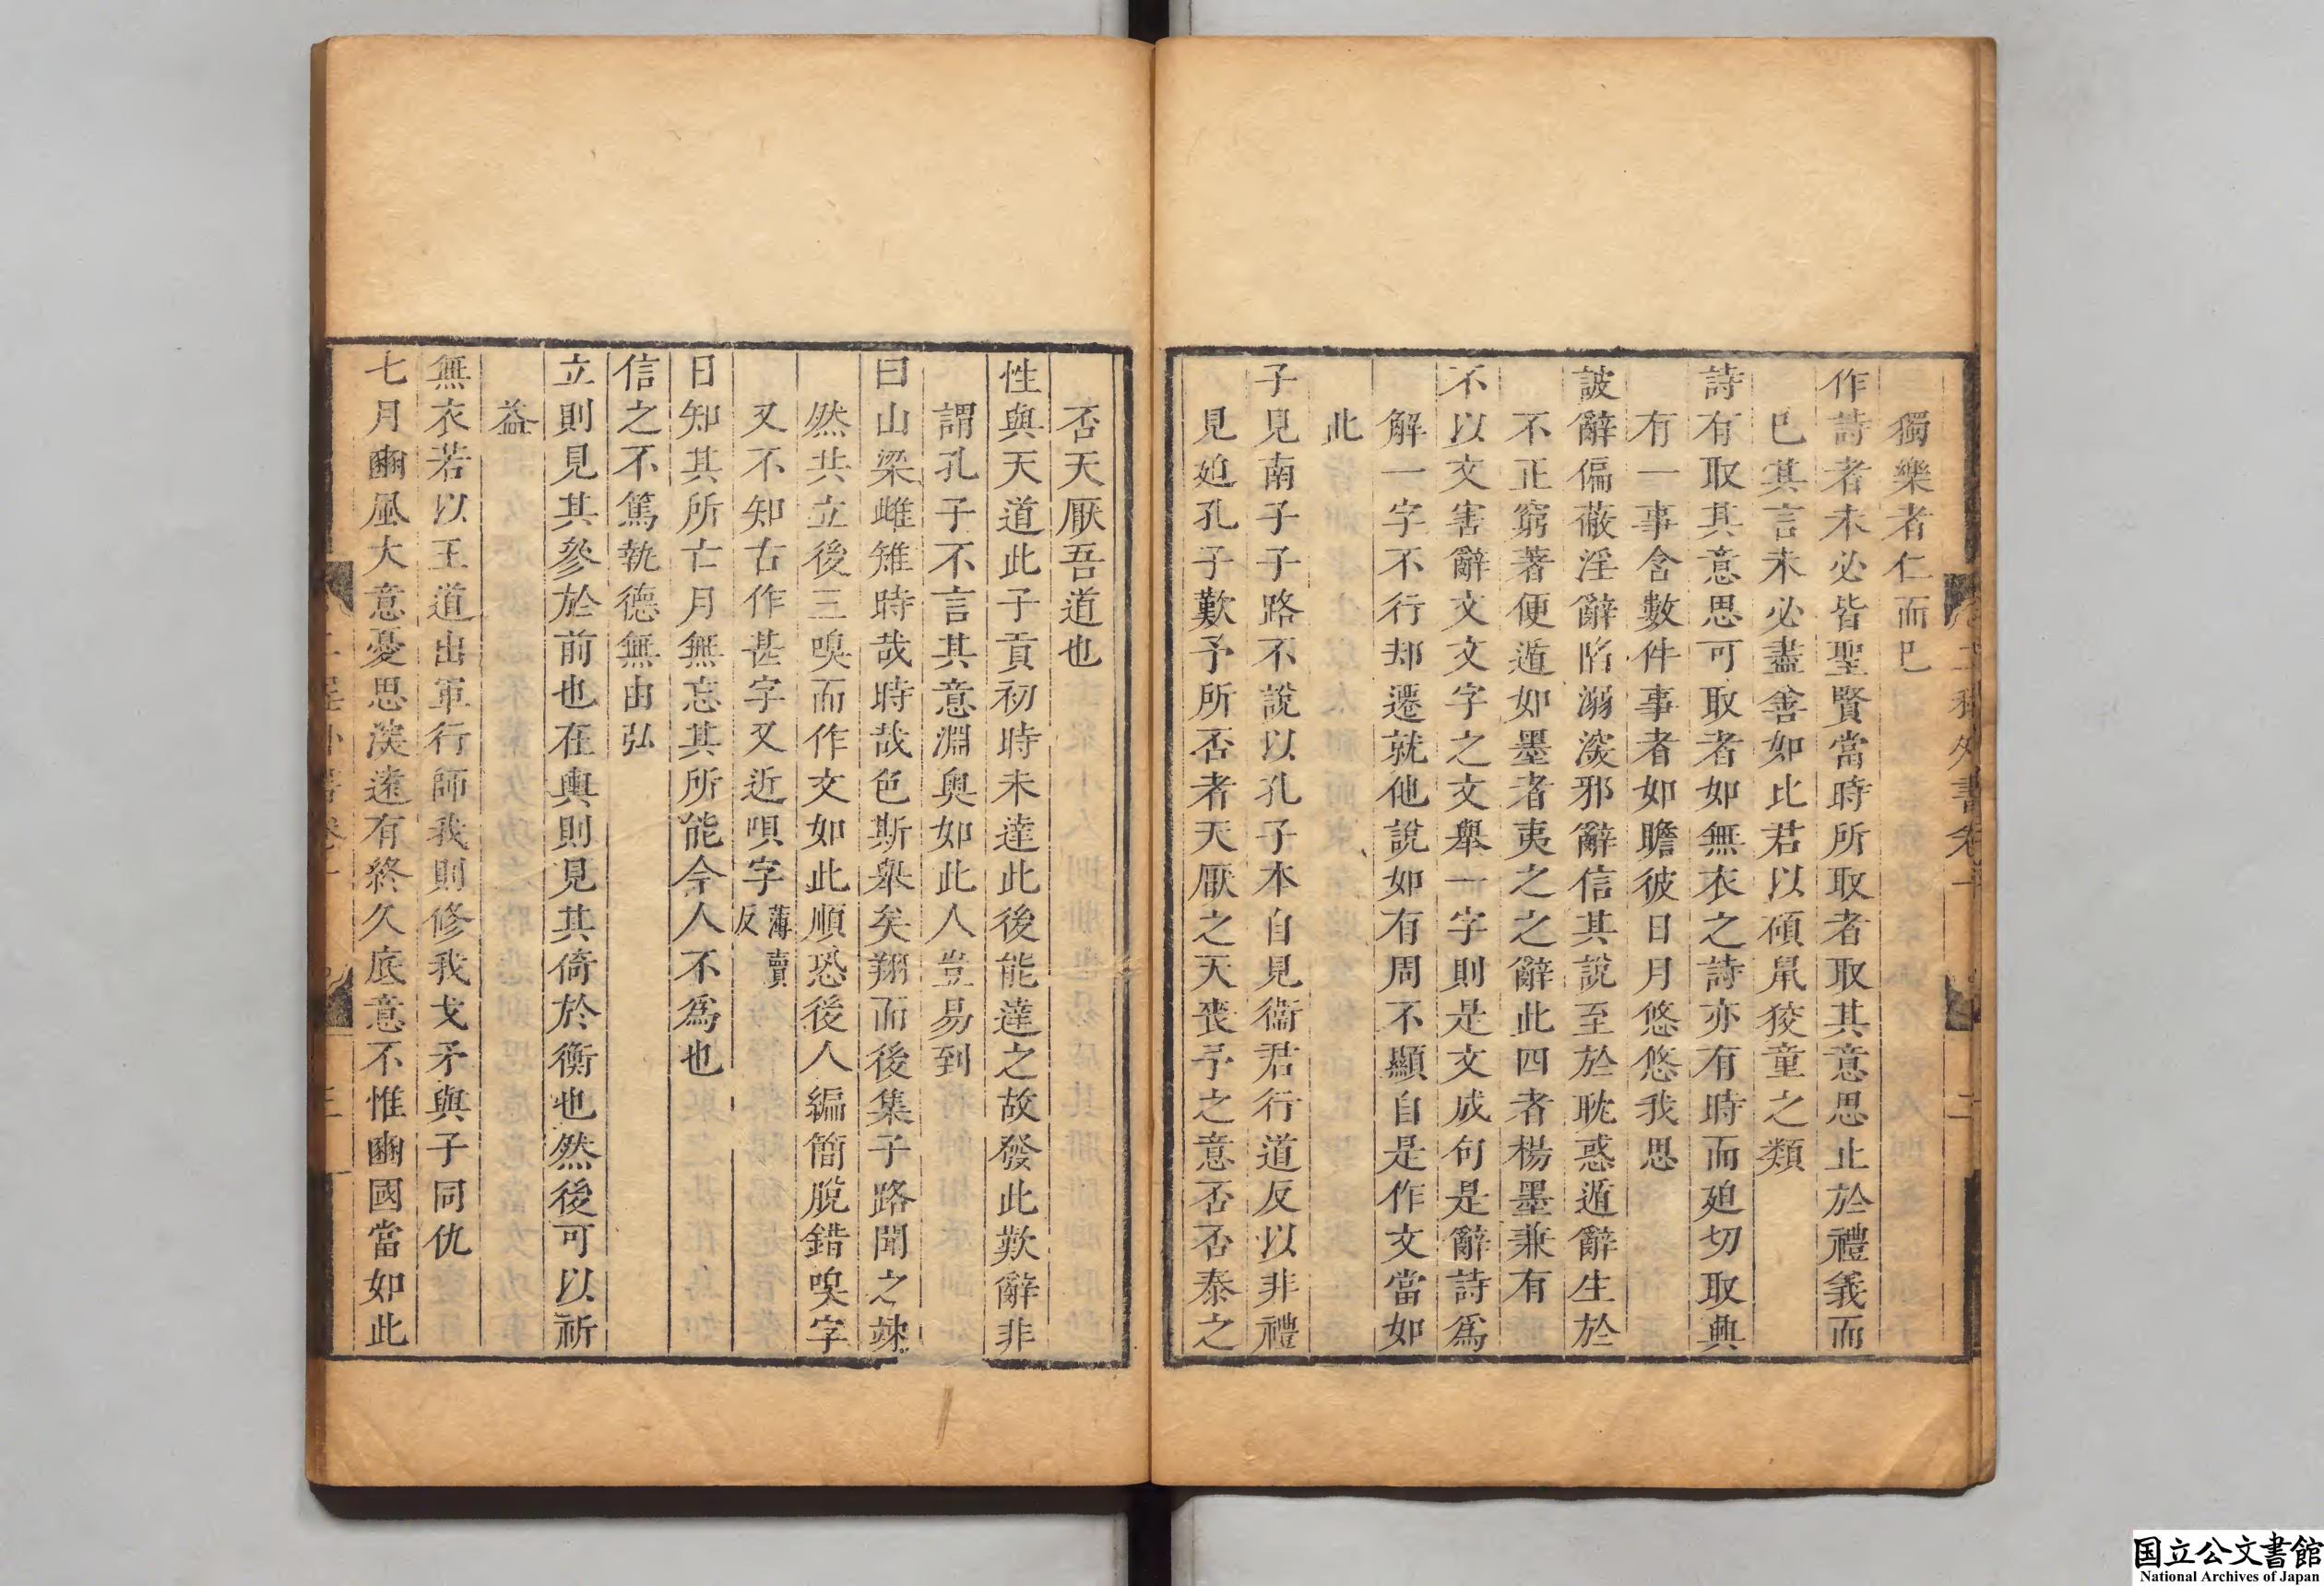 獨樂者仁而已
作詩者未必皆聖賢當時所取者取其意思止於禮義而
已其言未必盡善如比君以碩鼠狡童之類
詩有取其意思可取者如無衣之詩亦有時而廹切取興
有一事含數件事者如瞻彼日月悠悠我思
詖辭偏蔽淫辭陷溺深邪辭信其說至於耽惑遁辭生於
不正窮著便遁如墨者夷之之辭此四者楊墨兼有
不以文害辭文文字之文舉一字則是文成句是辭詩爲
解一字不行却遷就他說如有周不顯自是作文當如
此
子見南子子路不說以孔子本自見衞君行道反以非禮
見廹孔子歎予所否者天厭之天喪予之意否否泰之
否天厭吾道也
性與天道此子貢初時未達此後能達之故發此歎辭非
謂孔子不言其意淵奧如此人豈易到
曰山梁雌雉時哉時哉色斯舉矣翔而後集子路聞之竦
然共立後三嗅而作文如此順恐後人編簡脫錯嗅字
又不知古作甚字又近唄字薄賣反
日知其所亡月無忘其所能今人不爲也
信之不篤執德無由弘
立則見其參於前也在輿則見其倚於衡也然後可以祈
益
無衣若以王道出軍行師我則修我戈矛與子同仇
七月豳風大意憂思深遠有終久底意不惟豳國當如此
二程外書卷十
二
三
国立公文書館
National Archives of Japan